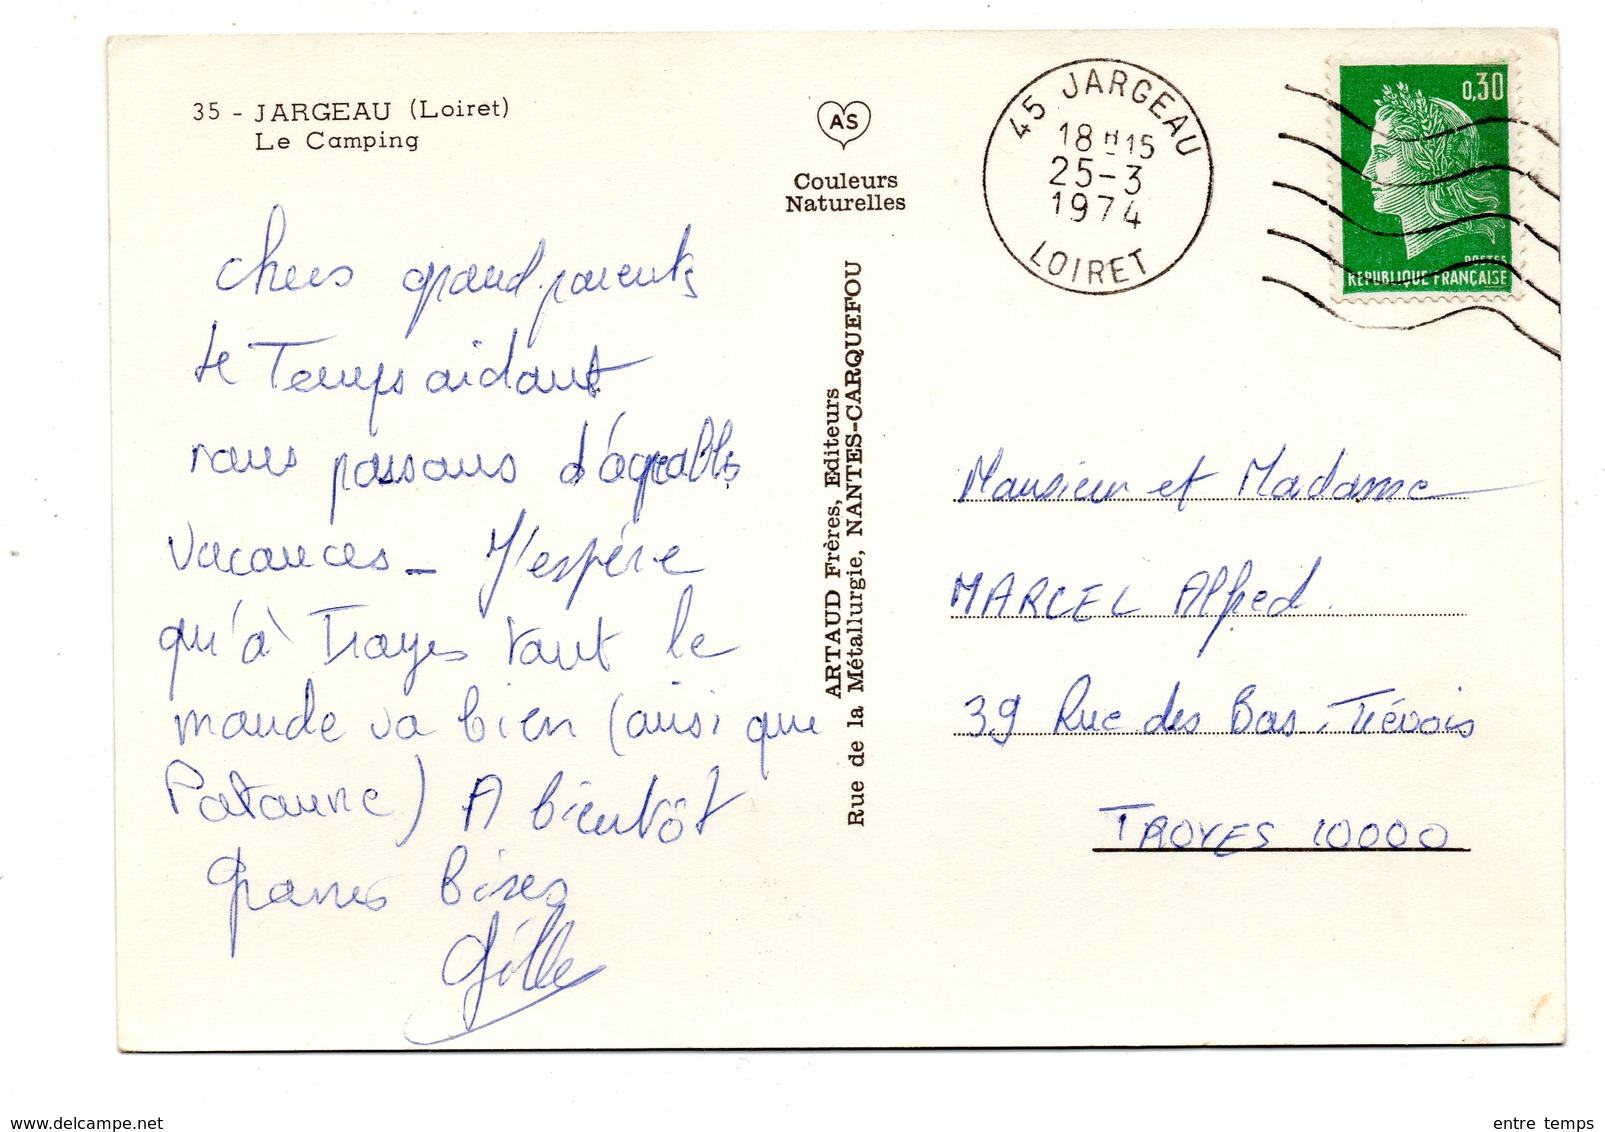 35 - JARGEAU (Loiret)
Le Camping
AS
Couleurs
Naturelles
45 JARGEAU
18 H 15
25-3
1974
LOIRET
0,30
POSTES
REPUBLIQUE FRANÇAISE
chers grand.parents
le Temps aidant
nous passons d'agréables
vacances_ J'espère
qu'à Troyes tout le
monde va bien (ainsi que
) A bientôt
bises
Gille
ARTAUD Frères, Editeurs
Rue de la Métallurgie, NANTES-CARQUEFOU
Monsieur et Madame
MARCEL Alfred.
39 Rue des Bas.Trévois
TROYES 10000
www.delcampe.net
entre temps